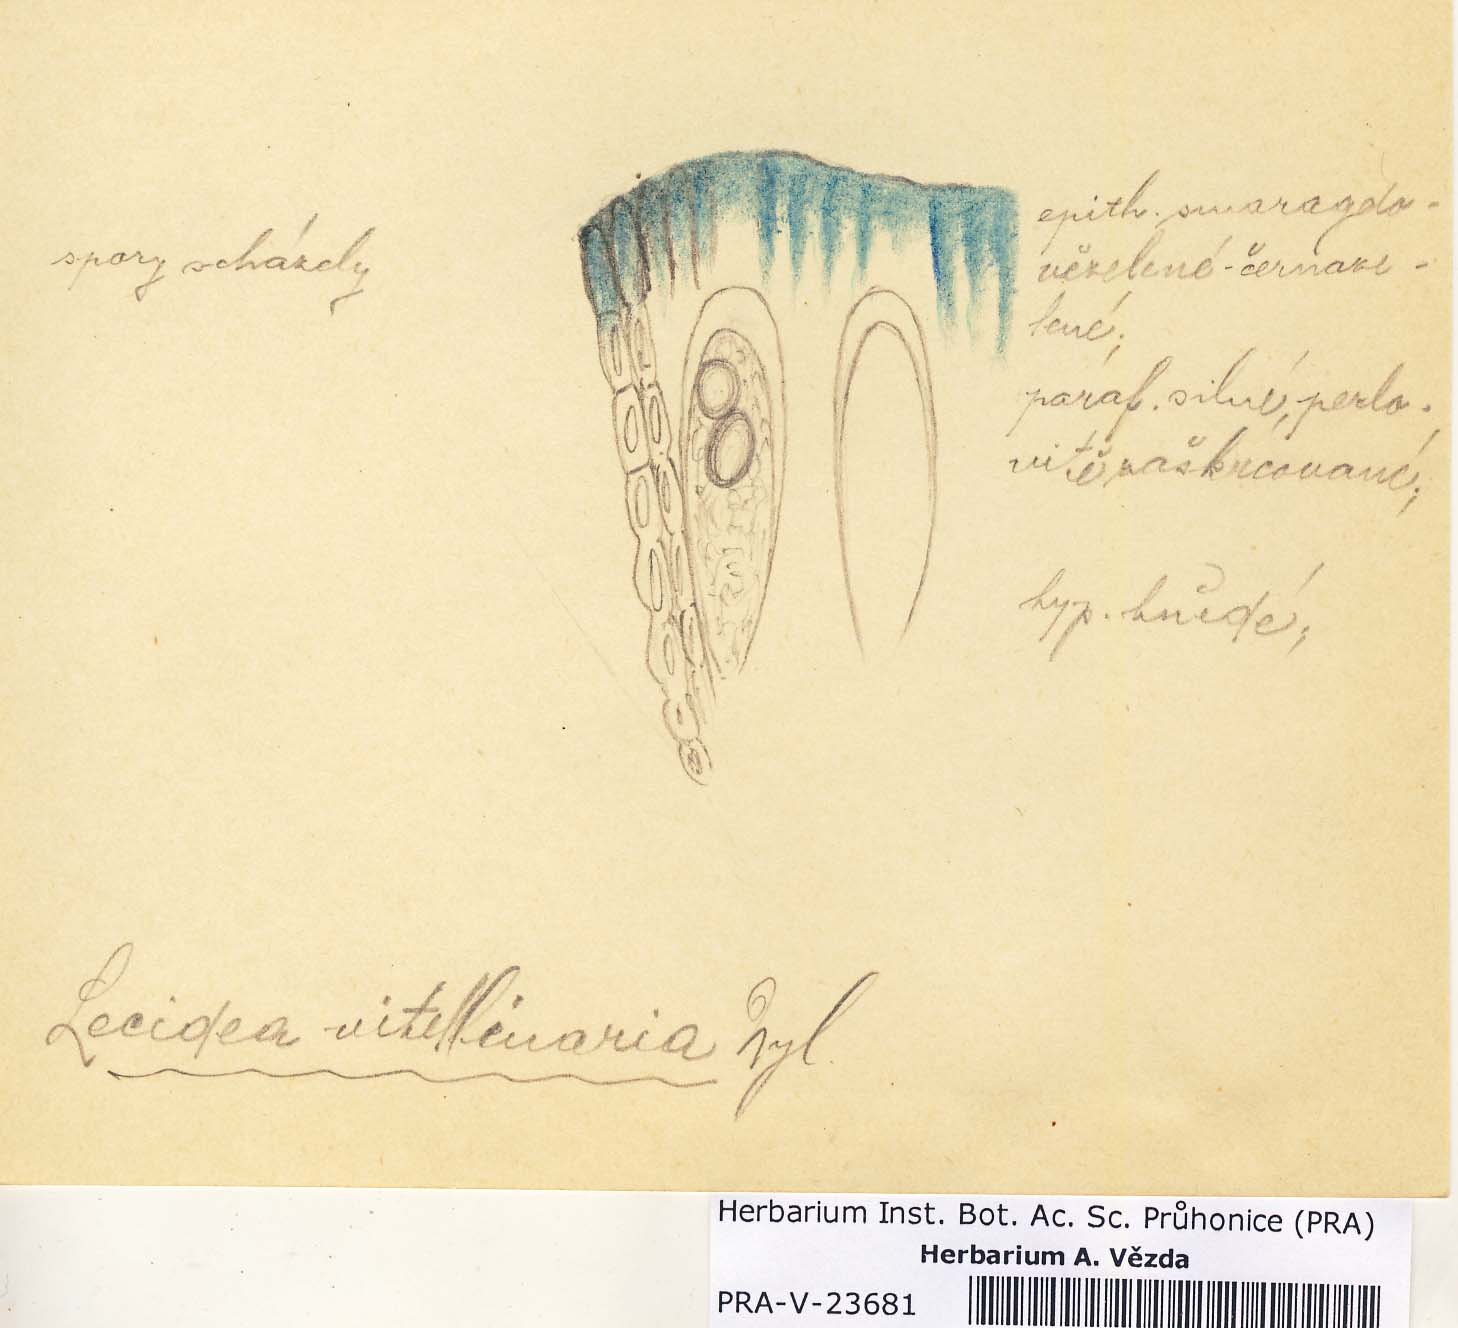 spory scházely
epith. smaragdo-
vězelené-černaze-
lené;
paraf. silné, perlo-
vitě zaškrcované;
hyp. hnědé;
Lecidea vitellinaria Nyl.
Herbarium Inst. Bot. Ac. Sc. Průhonice (PRA)
Herbarium A. Vězda
PRA-V-23681